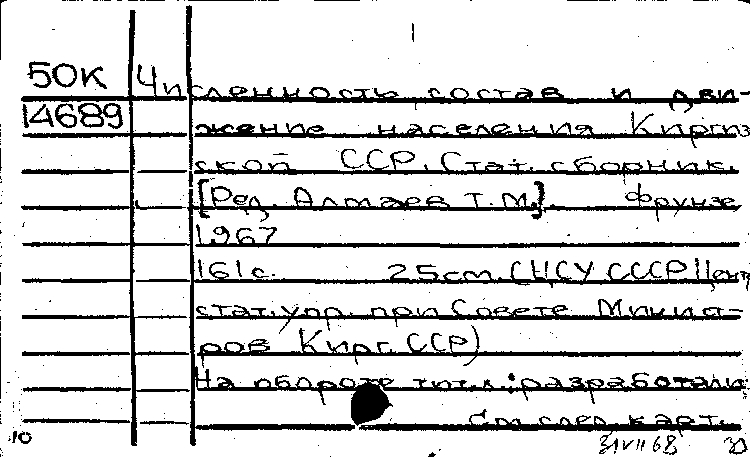 50К Численность состав и дви-
14689 жение населения Киргиз
ской ССР. Стат. сборник.
[Ред. Алтаев Т.М.]. Фрунзе
1967
161с. 25см. (ЦСУ СССР Центр
стат. упр. при Совете Минист-
ров Кирг. ССР)
На обороте тит. л.: разработали
См. след. карт.
10 31 VII 68